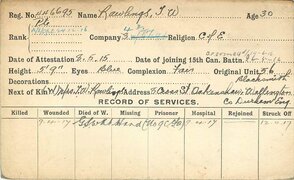 Reg. No. A46695 Name Rawlings, T W Age 30
Pte
Rank Company 3 Religion C of E
Date of Attestation 5.5.15 Date of joining 15th Can. Battn.
Height 5'9" Eyes Blue Complexion Fair Original Unit
Decorations Blacksmith
Next of Kin Address 3 Cross St Oakenshaw Willington
Co Durham Eng
RECORD OF SERVICES.
Killed Wounded Died of W. Missing Prisoner Hospital Rejoined Struck Off
9-4-17 Hand 9-4-17 12-4-17